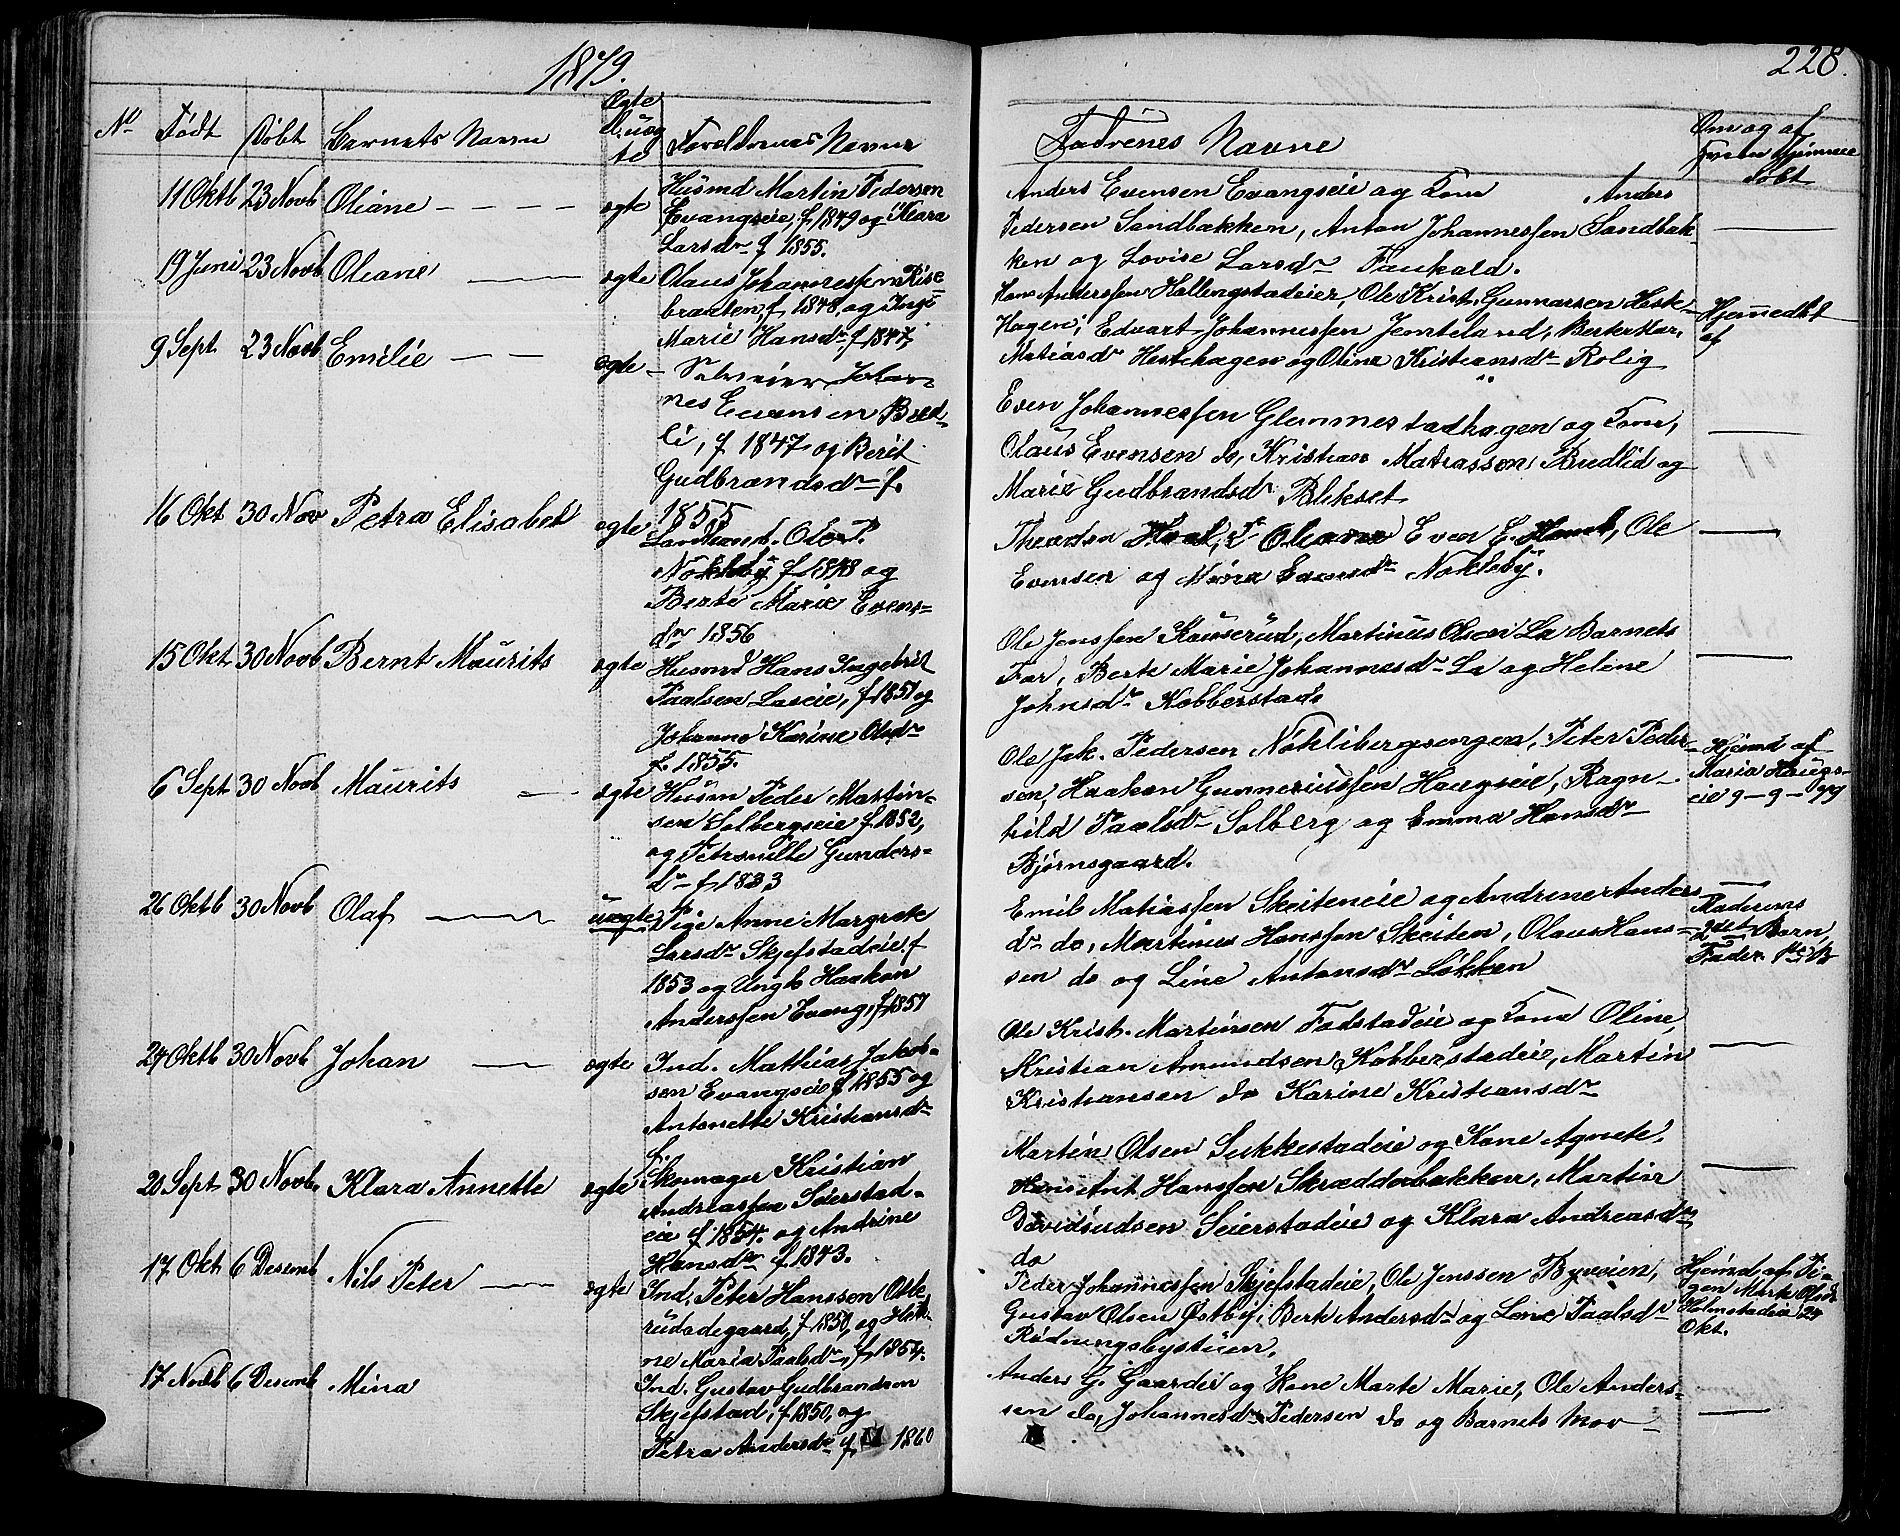 1879.
228.
No Födt Döbt Barnets Navn Ægte el. uæg te Forældrenes Navne
Fadrenes Navne
Om og af hvem Hjemme döbt
11 Oktb 23 Novb Oliane — — — — ægte Husmd Martin Pedersen
Evangseie, f 1849 og Klara
Larsdr f 1855.
Anders Evensen Evangseie og Kone Anders
Pedersen Sandbakken, Anton Johannessen Sandbak-
ken og Lovise Larsdr Faukald.
19 Juni 23 Novb Oliane — ægte Olaus Johannessen Rise
braaten, f 1848, og Inge
Marie Hansdr f 1847,
Hans Anderssen Hallingstadeier, Ole Krist. Gunnarsen Heste-
Hagen, Edvart Johannessen Jemteland, Berte Kar.
Matiasdr Hestehagen og Olina Kristiansdr Rolig
Hjemmedbt
af
9 Sept 23 Novb Emilie — — ægte — Selveier Johan-
nes Evensen Bræd-
li, f 1847 og Berit
Gudbrandsdr f.
1855
Even Johannessen Glemmestadhagen og Kone,
Olaus Evensen do, Kristian Matiassen Brædlid og
Marie Gudbrandsdr Blikset
16 Okt 30 Nov Petra Elisabet ægte Landhand. Ole P.
Nökleby f 1848 og
Berte Marie Evens-
dr 1856
Theodor Hoel, Even E. Hoel, Ole
Evensen og Mina Evensdr Nökleby.
15 Okt 30 Novb Bernt Maurits ægte Husmd Hans Ingebrit
Paalsen Laseie, f 1851 og
Johanne Karine Olsdr
f. 1855.
Ole Jenssen Kauserud, Martinus Olsen La Barnets
Far, Berte Marie Johannesdr La og Helene
Johnsdr Kobberstad
6 Sept 30 Novb Maurits — ægte Husm Peder Martin-
sen Solbergseie f 1852,
og Petronille Gunders-
dr f 1833
Ole Jak. Pedersen Nöklibergsengen, Peter Peder-
sen, Haakon Gunneriussen Haugseie, Ragn-
hild Paalsdr Solberg og Emma Hansdr
Björnsgaard.
Hjemd af
Maria Haugs-
eie 9-9-79
26 Oktb 30 Novb Olaf — uægte Pige Anne Margrete
Larsdr Skjefstadeie, f
1853 og Ungk Haakon
Anderssen Evang, f 1857
Emil Matiassen Skeiteneie og Andrine Anders
dr do, Martinus Hanssen Skeiten, Olaus Hans-
sen do og Line Antonsdr Lökken
Faderens
2det Barn
24 Oktb 30 Novb Johan — ægte Ind. Mathias Jakob-
sen Evangseie f 1855 og
Antonette Kristiansdr
f.
Ole Krist. Martinsen Fodstadeie og Kone Oline,
Kristian Amundsen Kobberstadeie, Martin
Kristiansen do Karine Kristiansdr
20 Sept 30 Novb. Klara Annette ægte Skomager Kristian
Andreassen Seierstad-
eie f 1854. og Andrine
Hansdr f 1843.
Martin Olsen Sukkestadeie og Kone Agnete,
Hans Ant Hanssen Skræddebakken, Martin
Davidsudsen Seierstadeie og Klara Andreasdr
do
17 Okt 6 Desemb Nils Peter — ægte Ind. Peter Hanssen Ode
rudødegaard, f 1850, og Hel-
ne Maria Paalsdr, f 1854.
Peder Johannessen Skjefstadeie, Ole Jenssen Byveien,
Gustav Olsen Østby, Berte Andersdr og Lene Paalsdr
Rödningsbystuen,
Hjemd af Pi-
gen Marte Olsdr
Holmstadeie 24
Okt.
17 Novb 6 Desemb Mina Ind. Gustav Gudbrandsen
Skjefstad, f 1850, og
Petra Andersdr f. 1860
Anders G. Gaarder og Kone Marte Marie, Ole Anders-
sen do, Johannesdr Pedersen do og Barnets Mor